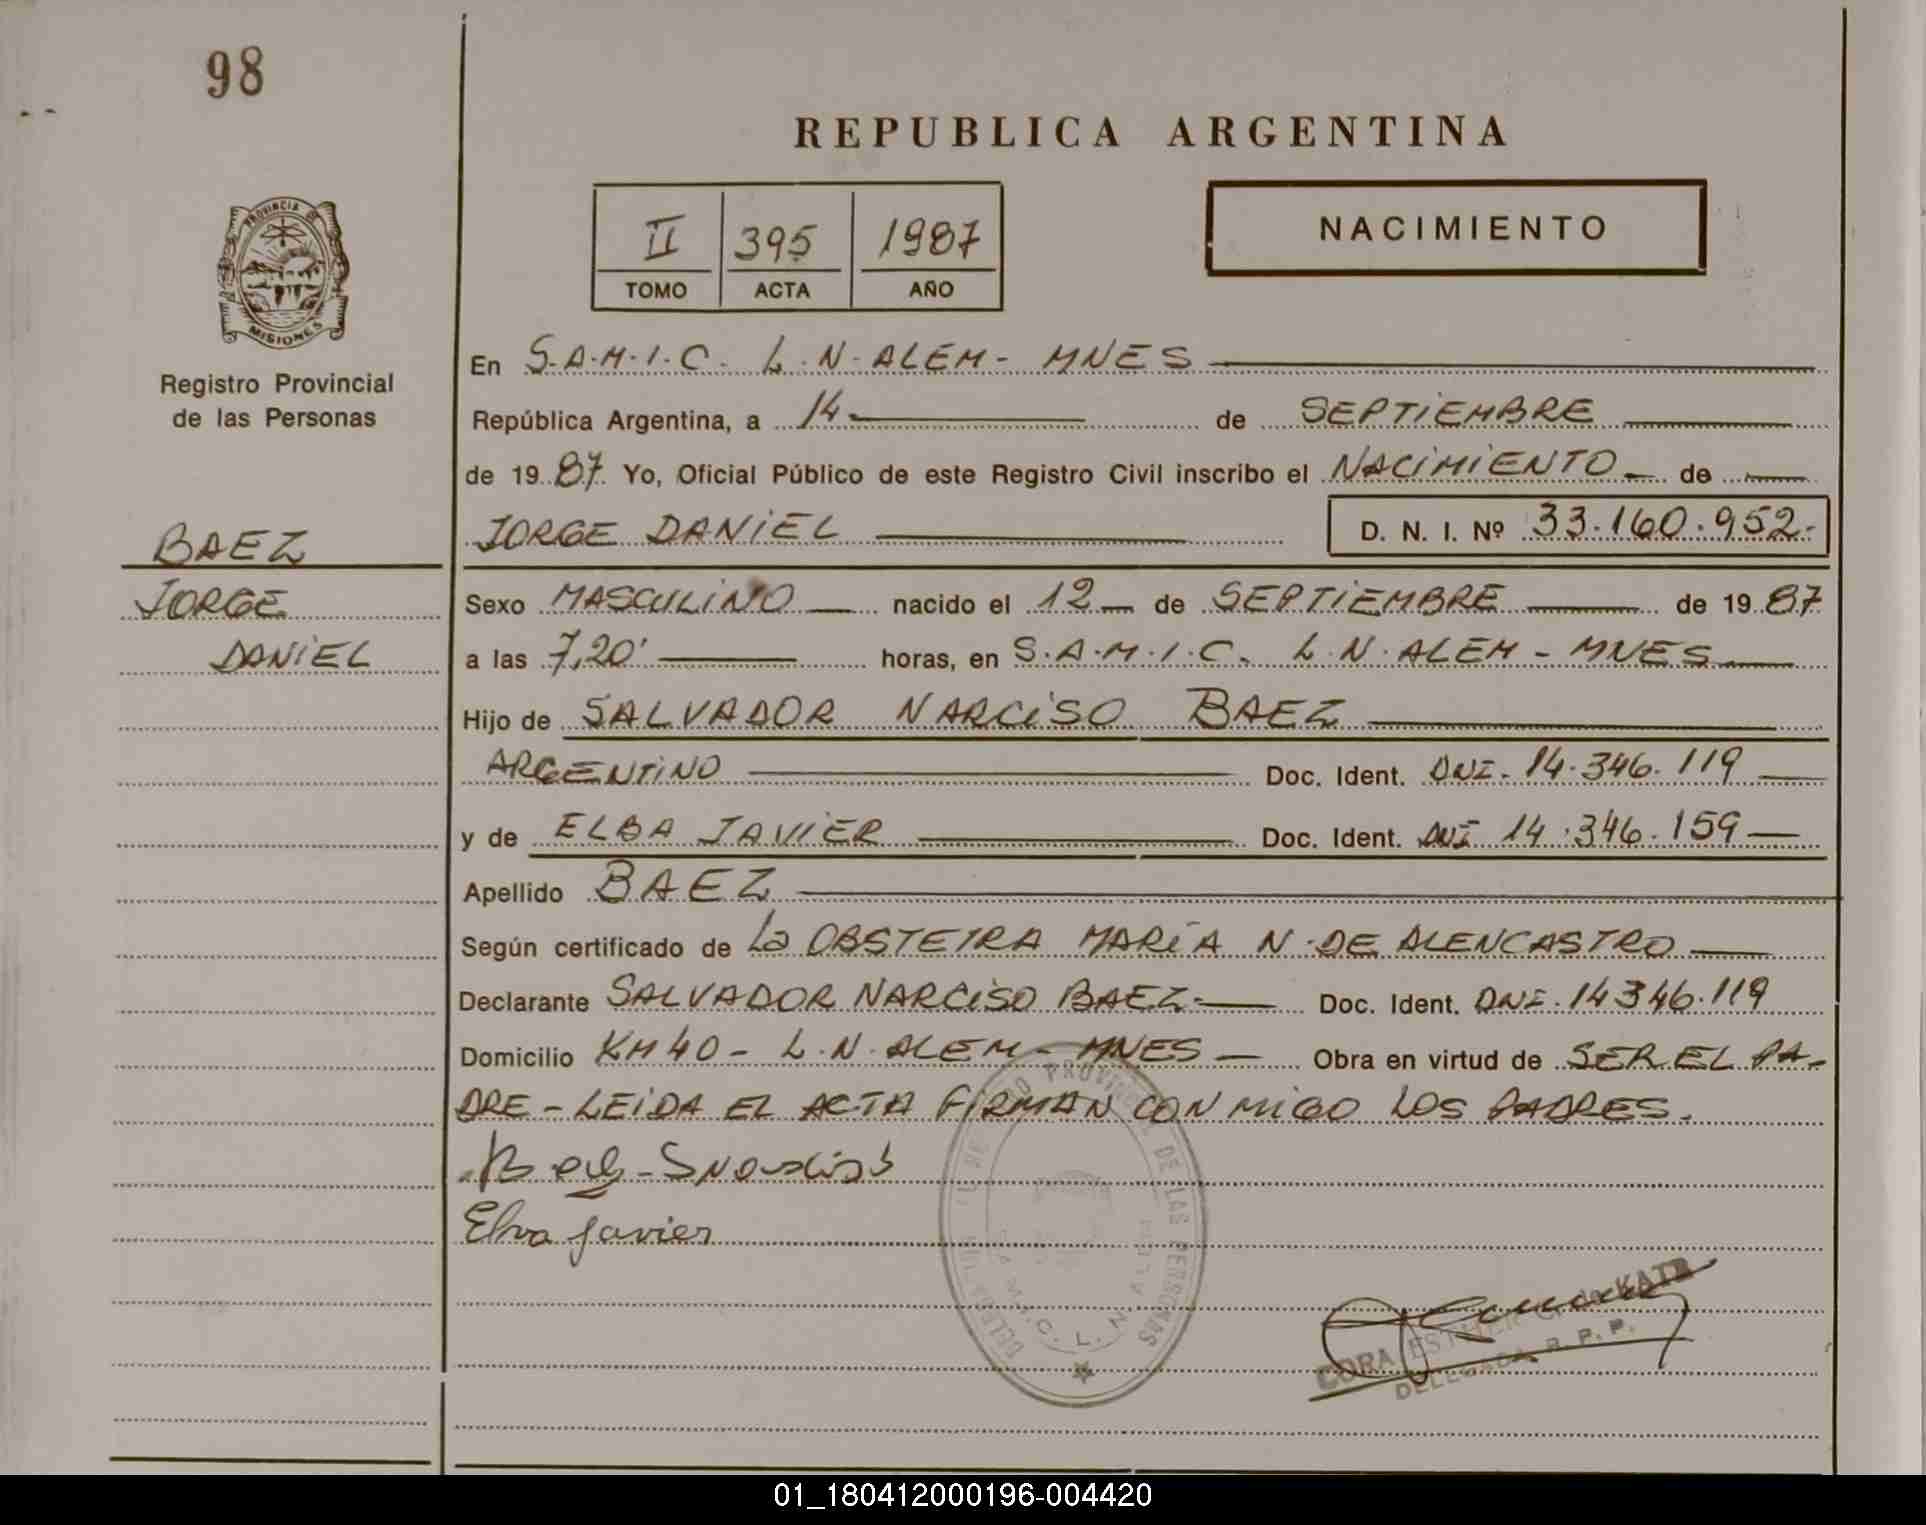 98
REPUBLICA ARGENTINA
PROVINCIA DE
MISIONES
Registro Provincial
de las Personas
II 395 1987
TOMO ACTA AÑO
NACIMIENTO
En S.A.M.I.C. L.N. ALEM - MNES
República Argentina, a 14 de SEPTIEMBRE
de 19 87 Yo, Oficial Público de este Registro Civil inscribo el NACIMIENTO de
JORGE DANIEL D. N. I. Nº 33.160.952.
BAEZ
JORGE
DANIEL
Sexo MASCULINO nacido el 12 de SEPTIEMBRE de 19 87
a las 7,20' horas, en S.A.M.I.C. L.N. ALEM - MNES
Hijo de SALVADOR NARCISO BAEZ
ARGENTINO Doc. Ident. DNI. 14.346.119
y de ELBA JAVIER Doc. Ident. DNI 14.346.159
Apellido BAEZ
Según certificado de La OBSTETRA MARÍA N. DE ALENCASTRO
Declarante SALVADOR NARCISO BAEZ Doc. Ident. DNI. 14346.119
Domicilio KM 40 - L.N. ALEM - MNES Obra en virtud de SER EL PA-
DRE - LEIDA EL ACTA FIRMAN CON MIGO LOS PADRES.
Elva Javier
REGISTRO PROVINCIAL DE LAS PERSONAS
S.A.M.I.C. L. N. ALEM
CORA ESTHER de KATZ
DELEGADA R. P. P.
01_180412000196-004420